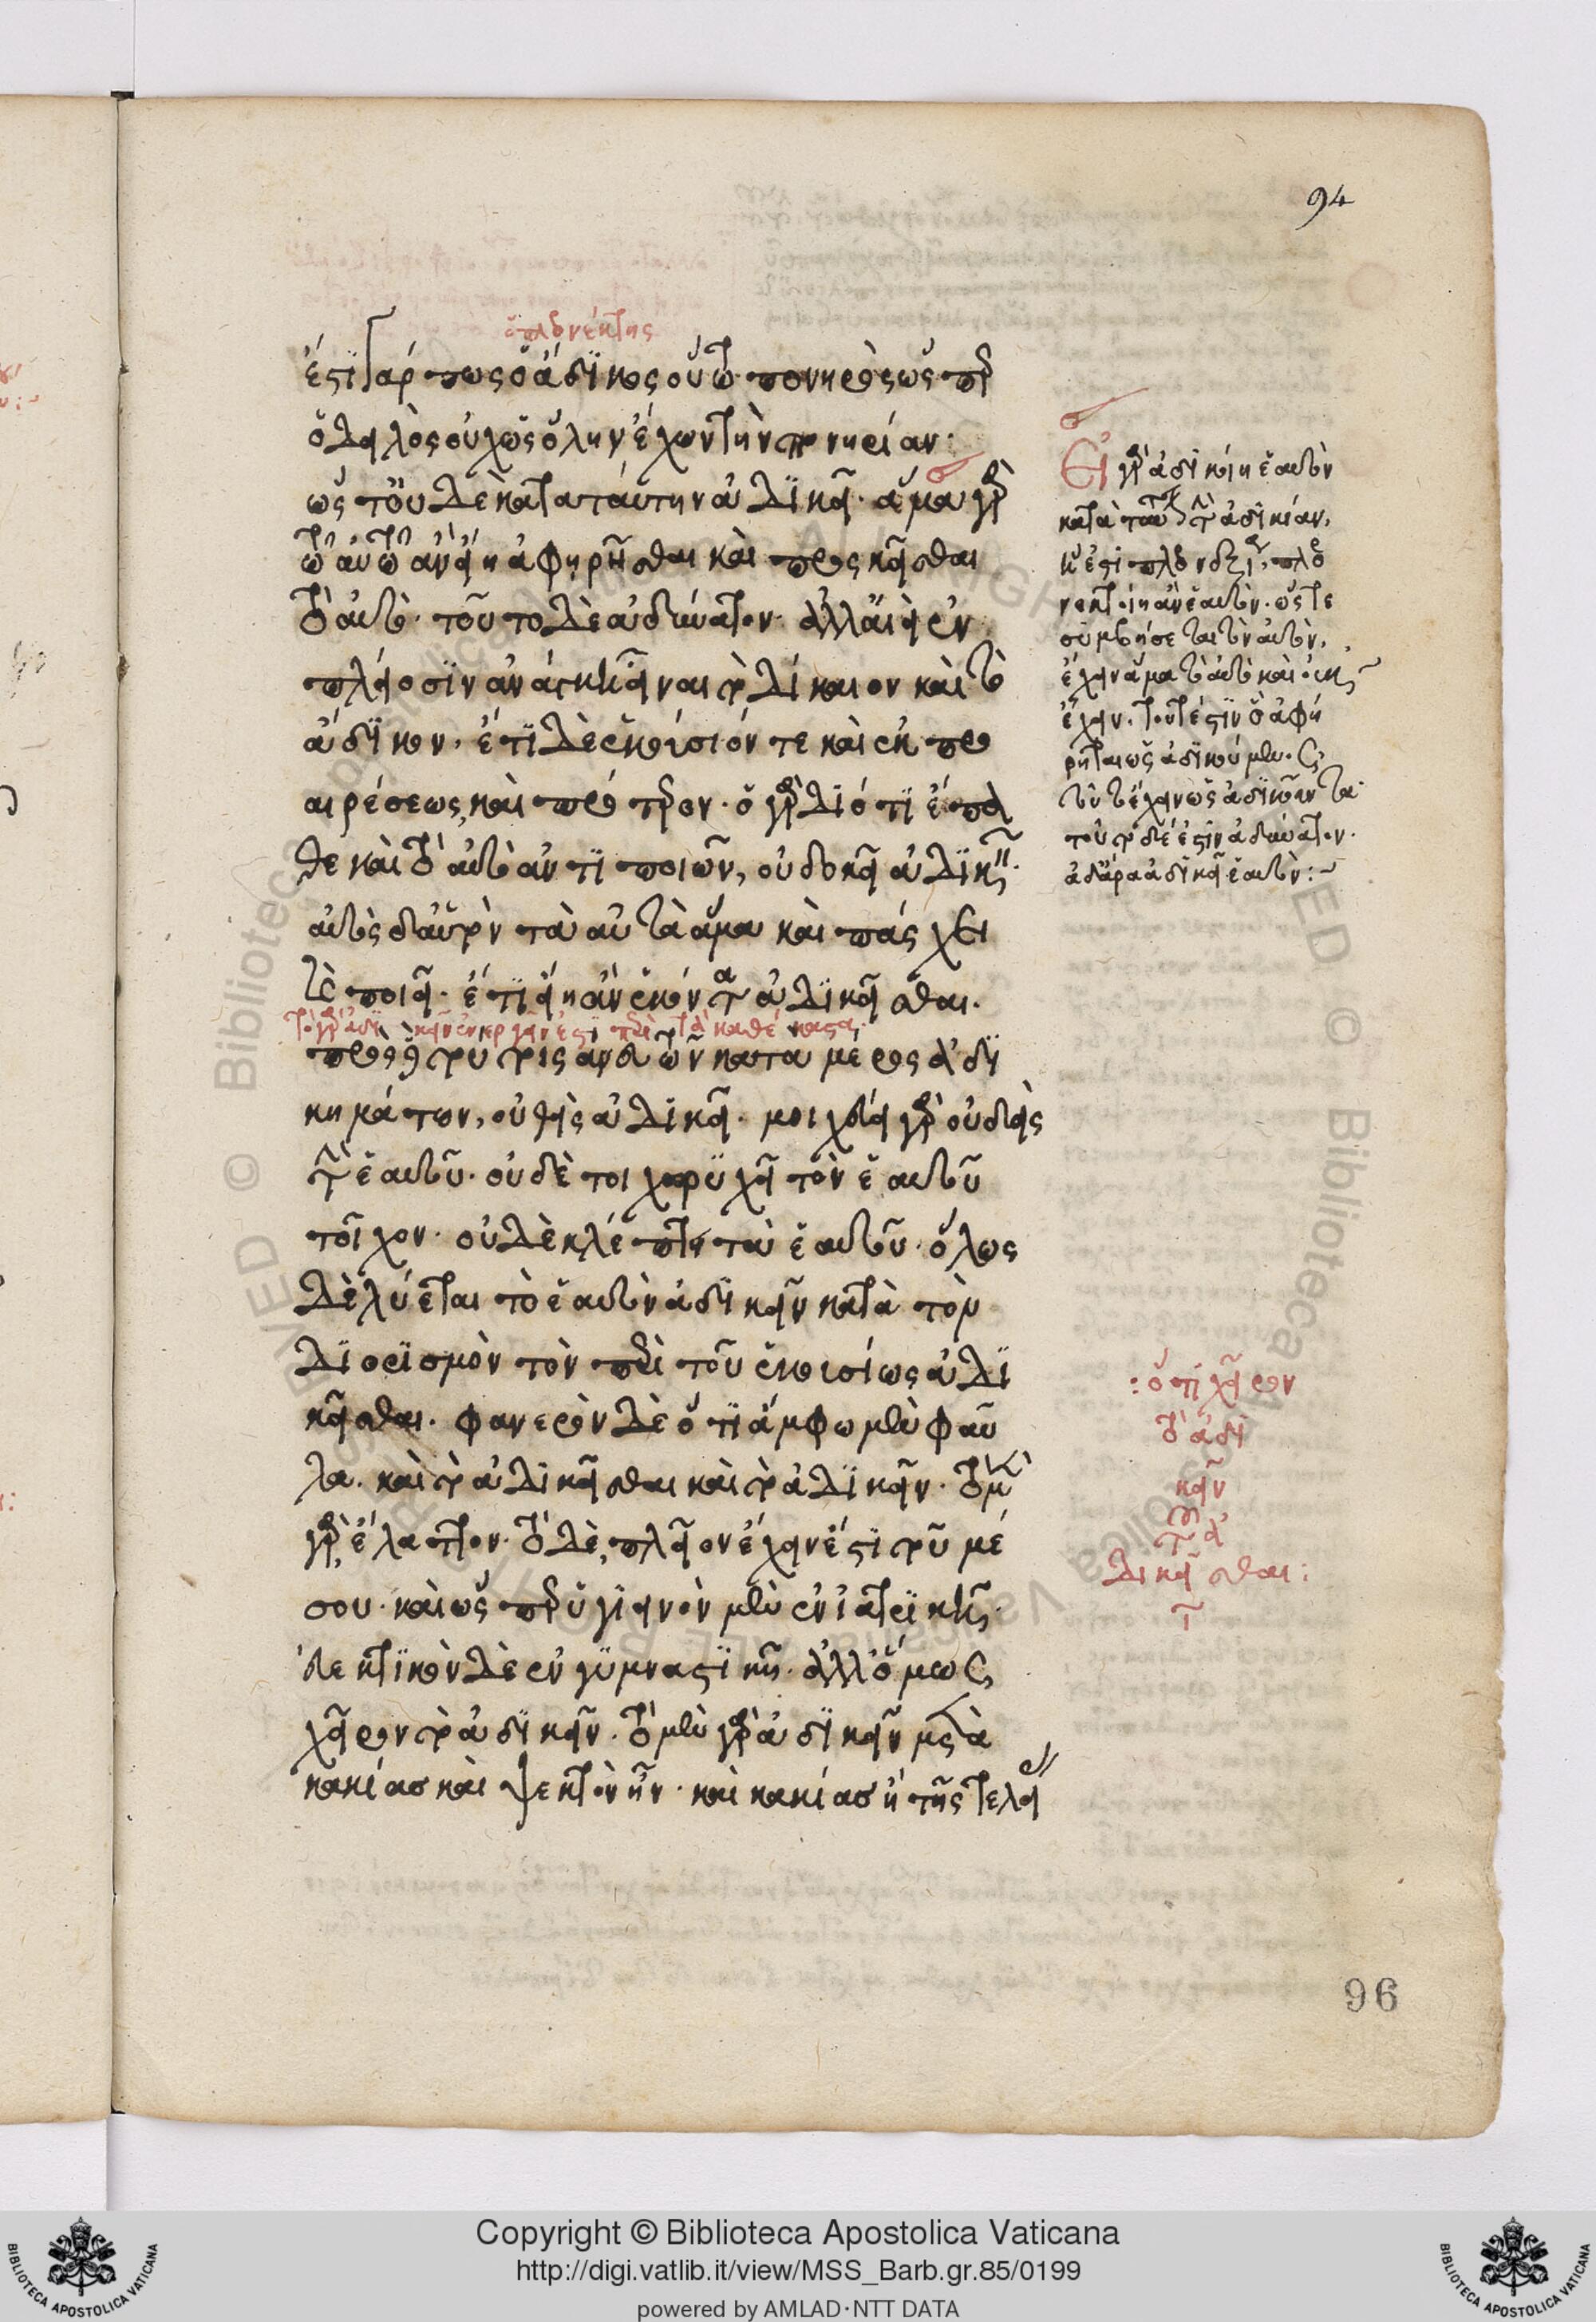 94
ὁ πλεονέκτης
ἔστι γάρ πως ὁ ἄδικος οὕτω πονηρὸς ὥσπερ
ὁ δειλὸς οὐχ ὡς ὅλην ἔχων τὴν πονηρίαν·
ὥστ' οὐδὲ κατὰ ταύτην ἀδικεῖ· ἅμα γὰρ
τῷ αὐτῷ ἂν εἴη ἀφῃρῆσθαι καὶ προσκεῖσθαι
τὸ αὐτό· τοῦτο δὲ ἀδύνατον· ἀλλ' ἀεὶ ἐν
πλείοσιν ἀνάγκη εἶναι τὸ δίκαιον καὶ τὸ
ἄδικον. ἔτι δὲ ἑκούσιόν τε καὶ ἐκ προ
αιρέσεως, καὶ πρότερον· ὁ γὰρ διότι ἔπα
θε καὶ τὸ αὐτὸ ἀντιποιῶν, οὐ δοκεῖ ἀδικεῖν·
αὐτὸς δ' αὑτὸν τὰ αὐτὰ ἅμα καὶ πάσχει
καὶ ποιεῖ. ἔτι εἴη ἂν ἑκόντα ἀδικεῖσθαι.
τὸ γὰρ ἀδικεῖν ἐνεργεῖν ἐστι περὶ τὰ καθέκαστα
πρὸς δὲ τούτοις ἄνευ τῶν κατὰ μέρος ἀδι
κημάτων, οὐθεὶς ἀδικεῖ. μοιχεύει γὰρ οὐδεὶς
τὴν ἑαυτοῦ. οὐδὲ τοιχωρυχεῖ τὸν ἑαυτοῦ
τοῖχον. οὐδὲ κλέπτει τὰ ἑαυτοῦ. ὅλως
δὲ λύεται τὸ ἑαυτὸν ἀδικεῖν κατὰ τὸν
διορισμὸν τὸν περὶ τοῦ ἑκουσίως ἀδι
κεῖσθαι. φανερὸν δὲ ὅτι ἄμφω μὲν φαῦ
λα. καὶ τὸ ἀδικεῖσθαι καὶ τὸ ἀδικεῖν. τὸ μὲν
γὰρ ἔλαττον. τὸ δὲ, πλεῖον ἔχειν ἐστὶ τοῦ μέ
σου. καὶ ὥσπερ ὑγιεινὸν μὲν ἐν ἰατρικῇ.
εὐεκτικὸν δὲ ἐν γυμναστικῇ. ἀλλ' ὅμως
χεῖρον τὸ ἀδικεῖν. τὸ μὲν γὰρ ἀδικεῖν μετὰ
κακίας καὶ ψεκτὸν ἦν. καὶ κακίας ἢ τῆς τελεί
Εἰ γὰρ ἀδικοίη ἑαυτὸν
κατὰ ταύτην τὴν ἀδικίαν,
ἥ ἐστι πλεονεξία, πλεο
νεκτοίη ἂν ἑαυτόν. ὥστε
συμβήσεται τὸν αὐτὸν,
ἔχειν ἅμα τὸ αὐτὸ καὶ οὐκ
ἔχειν. τουτέστιν ὃ ἀφῄ
ρηται ὡς ἀδικούμενος,
τοῦτο ἔχειν ὡς ἀδικοῦντα·
τοῦτο δέ ἐστιν ἀδύνατον.
ἀδικεῖ ἑαυτόν:~
: ὅτι χεῖρον
τὸ ἀδι
κεῖν
τοῦ ἀ
δικεῖσθαι:
96
Copyright © Biblioteca Apostolica Vaticana
http://digi.vatlib.it/view/MSS_Barb.gr.85/0199
powered by AMLAD·NTT DATA